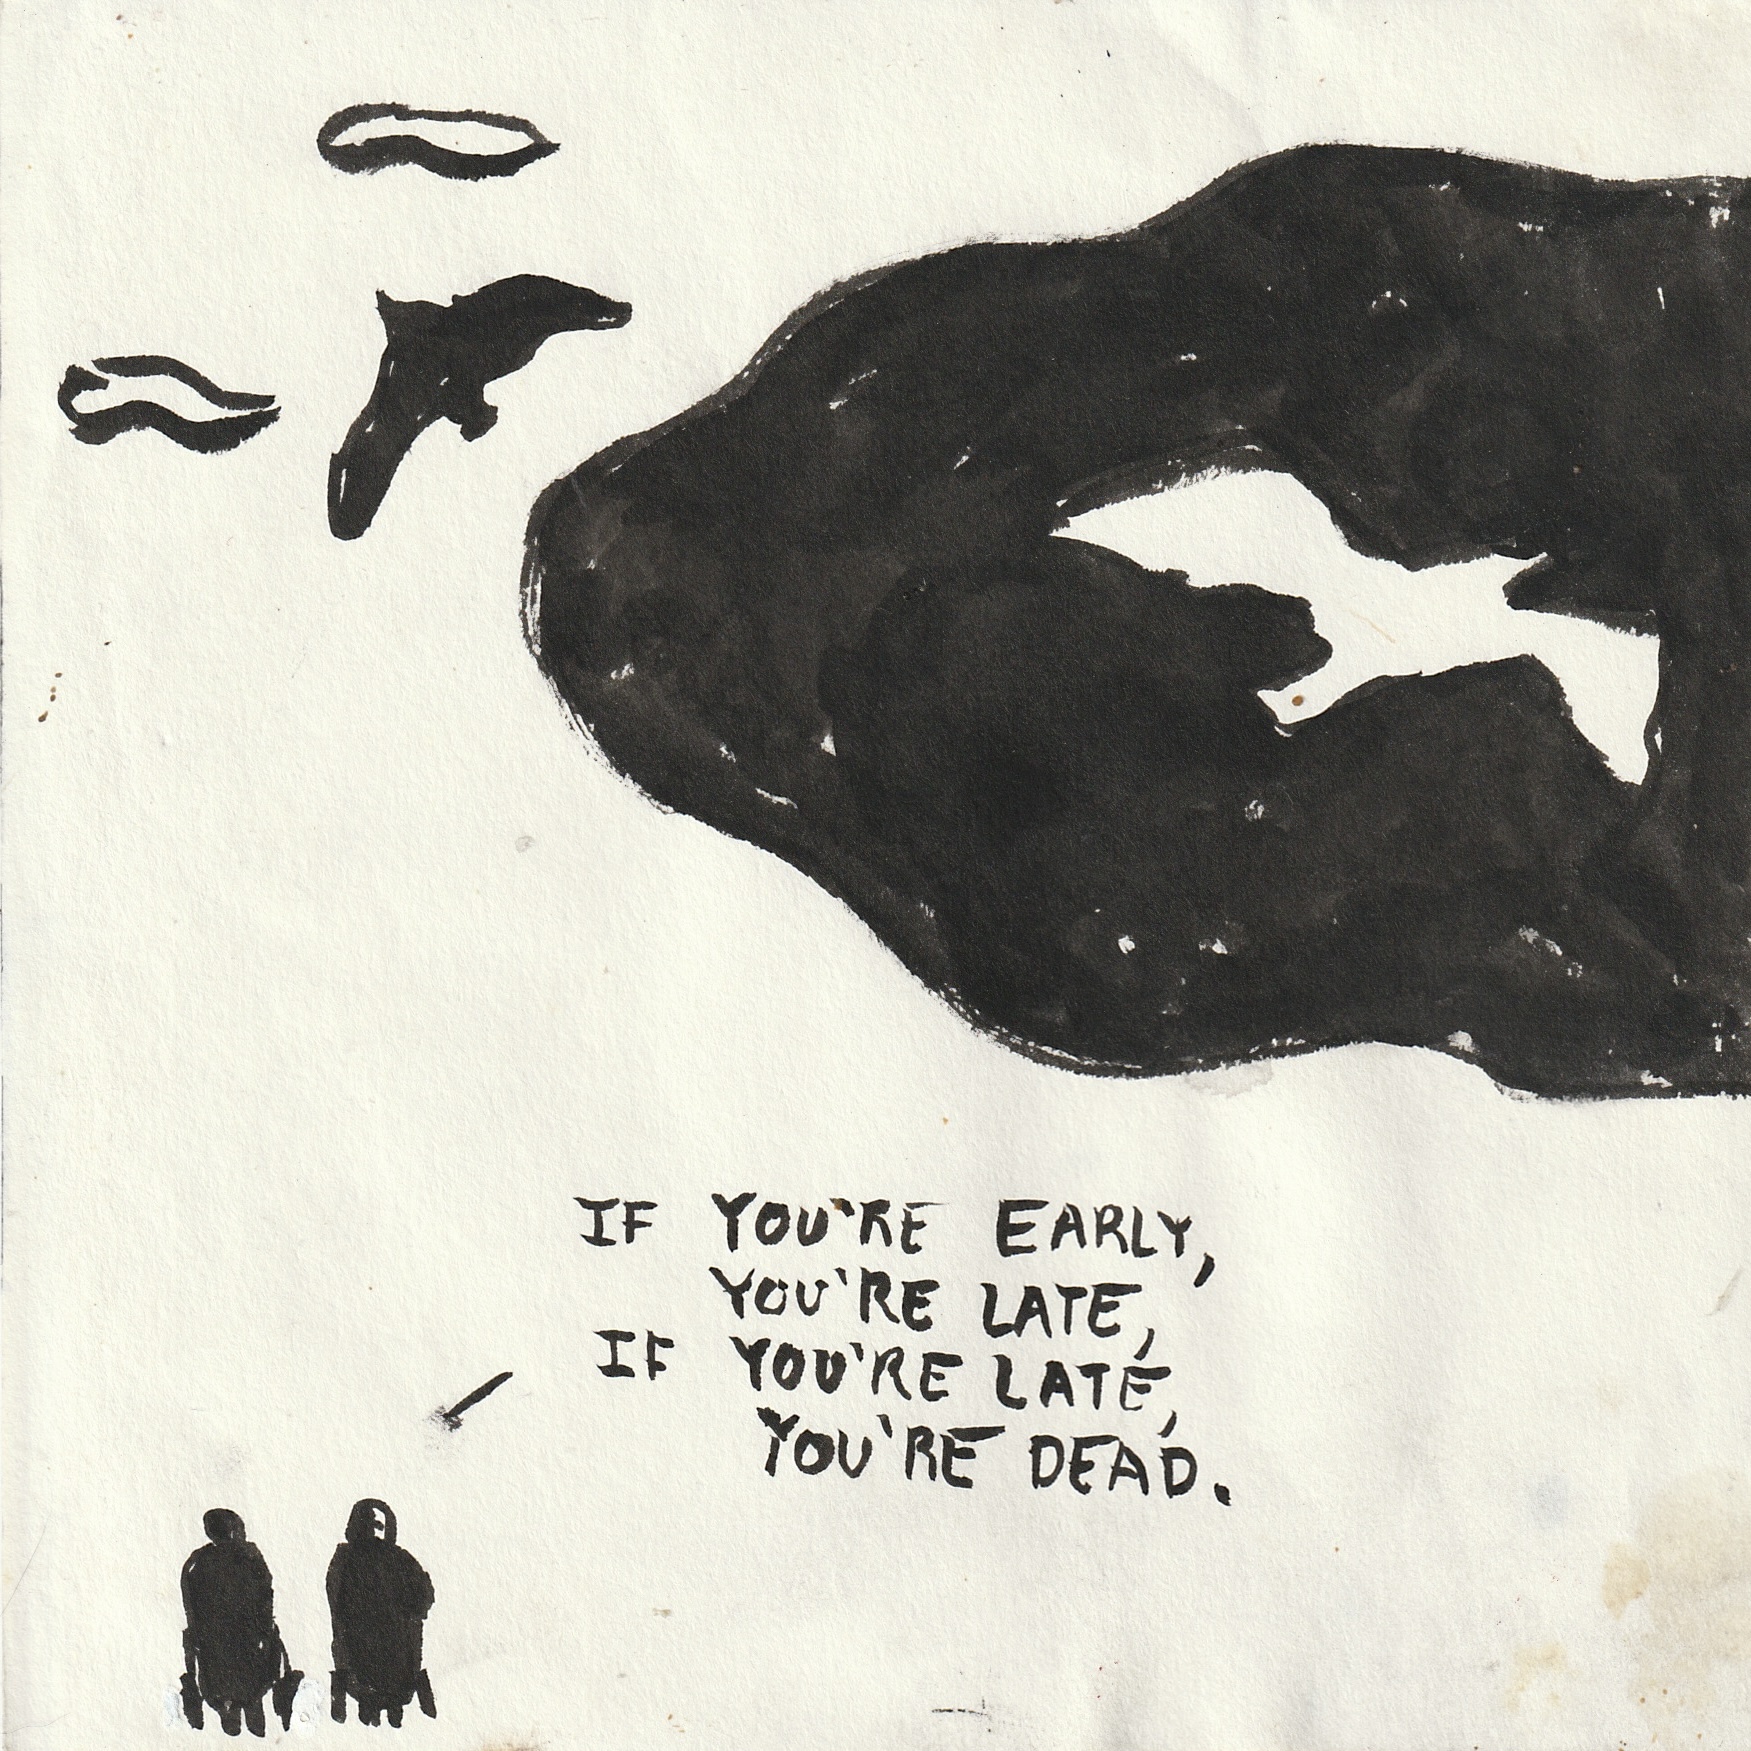 IF YOU'RE EARLY,
YOU'RE LATE,
IF YOU'RE LATE,
YOU'RE DEAD.